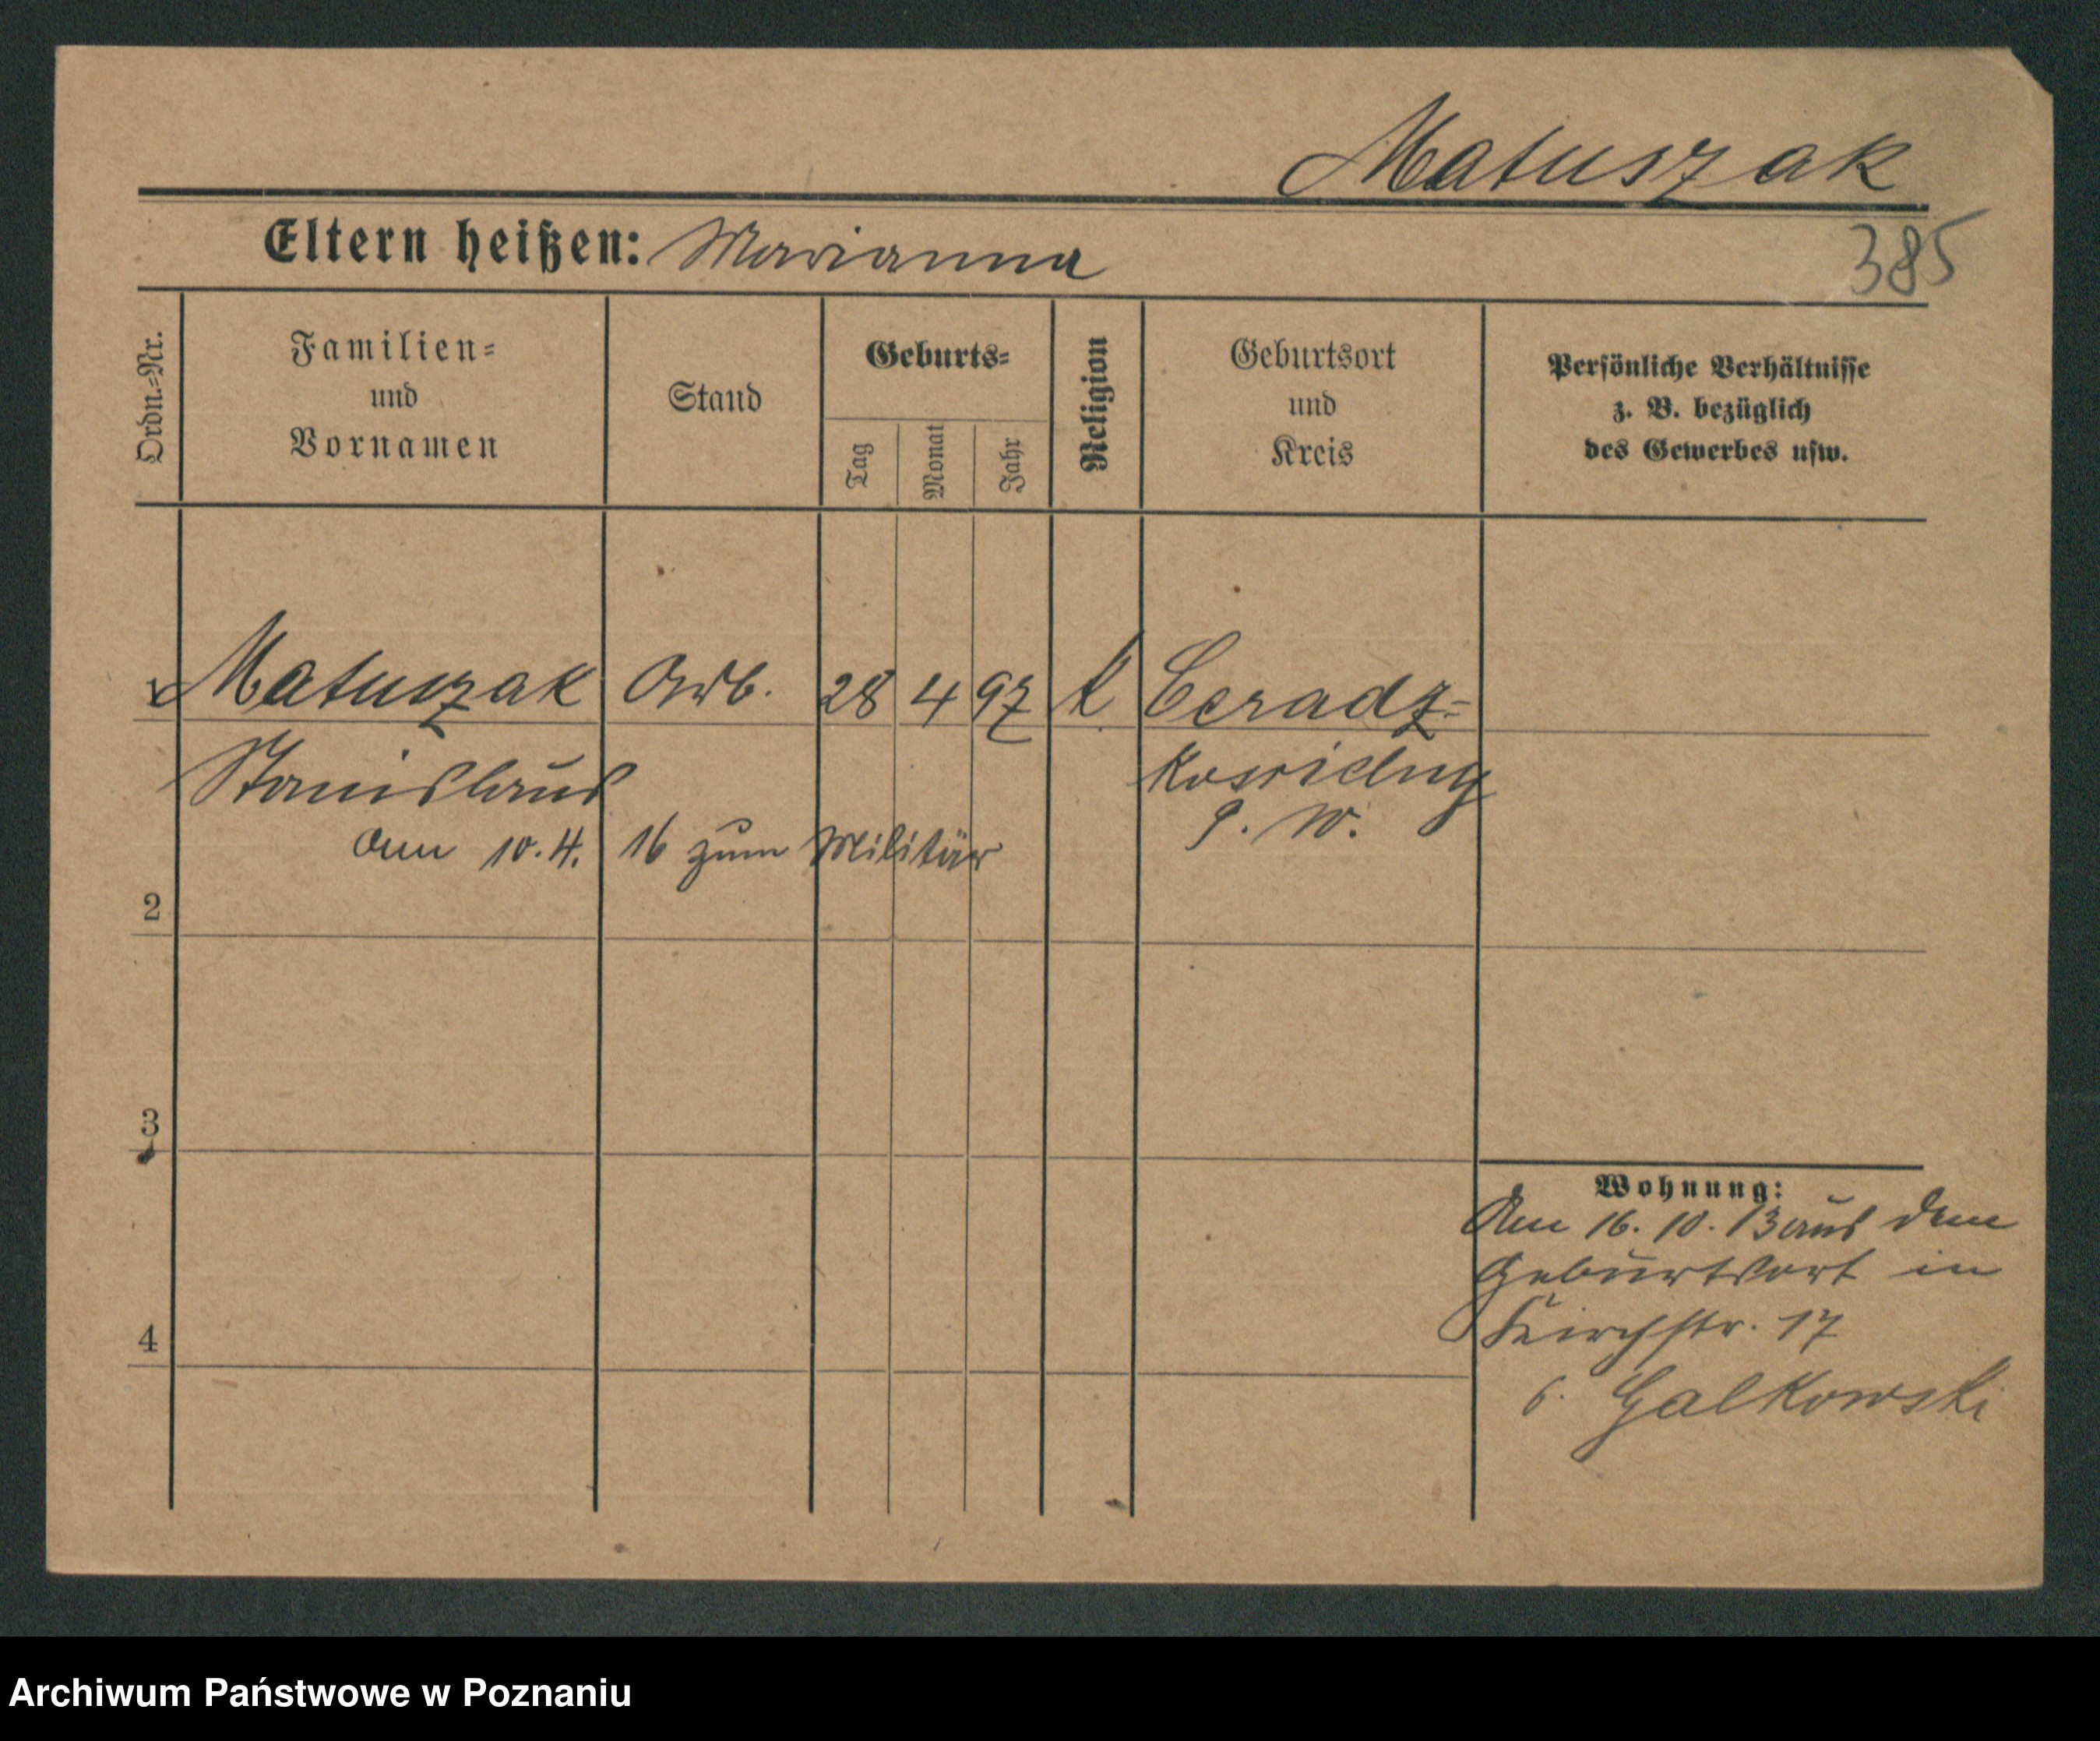 Matuszak
Eltern heißen: Marianna
385
Ordn.-Nr.
Familien-
und
Vornamen
Stand
Geburts-
Tag
Monat
Jahr
Religion
Geburtsort
und
Kreis
Persönliche Verhältnisse
z. B. bezüglich
des Gewerbes usw.
1 Matuszak Arb. 28 4 97 k Ceradz-
Stanislaus
P. W.
am 10.4. 16 zum Militär
2
3
4
Wohnung:
Am 16. 10. 13 aus dem
Geburtsort in
Kirchstr. 17
b. Galkowski
Archiwum Państwowe w Poznaniu